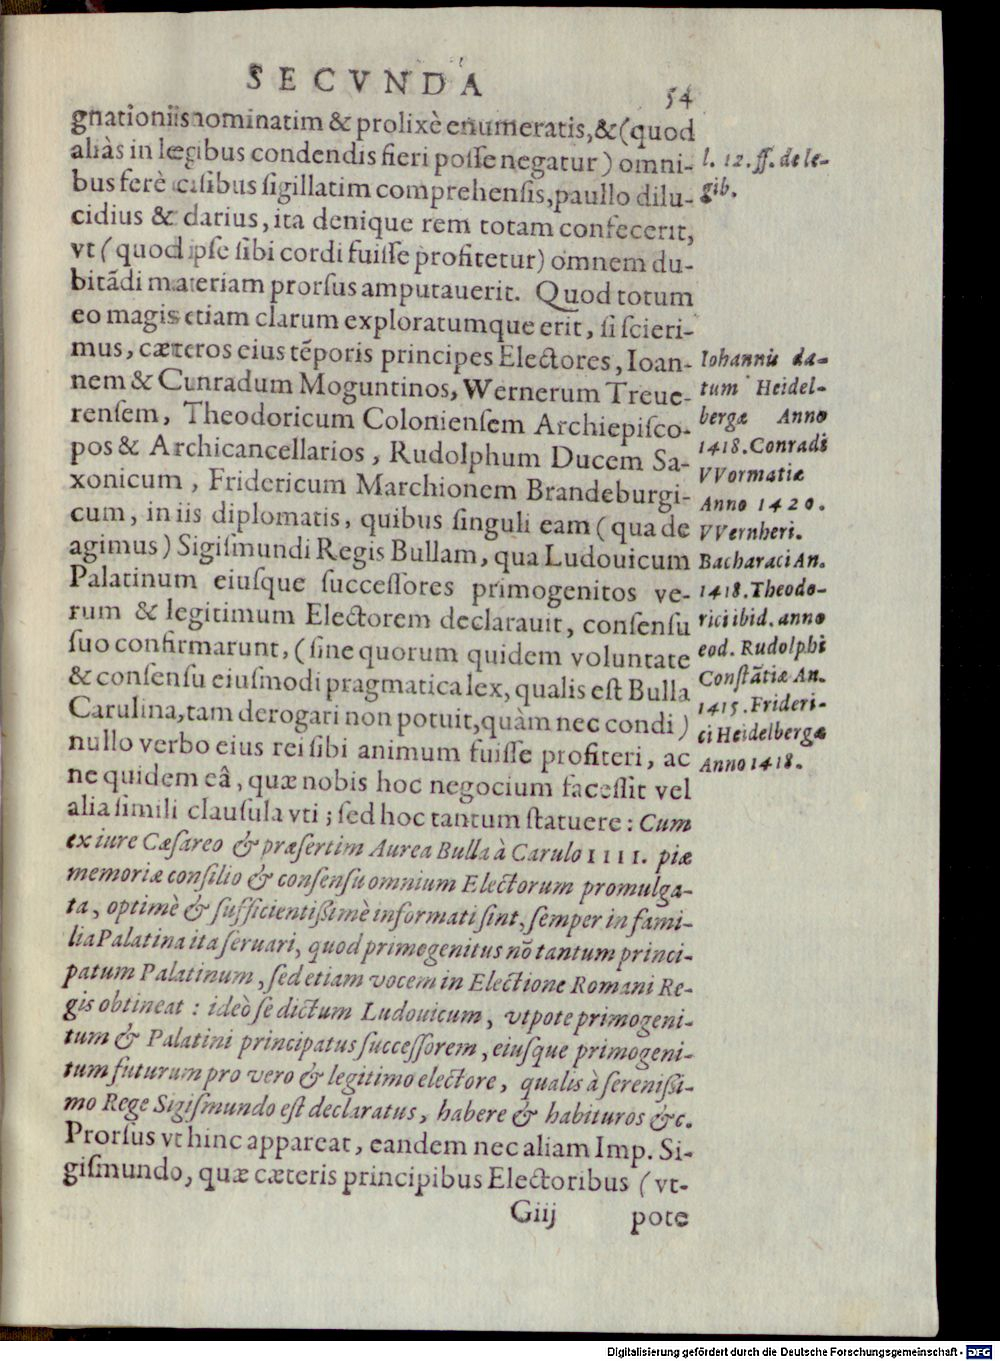 SECVNDA
54
gnationiis nominatim & prolixè enumeratis, & (quod
aliàs in legibus condendis fieri posse negatur) omni-
bus ferè casibus sigillatim comprehensis, paullo dilu-
cidius & clarius, ita denique rem totam confecerit,
vt (quod ipse sibi cordi fuisse profitetur) omnem du-
bitādi materiam prorsus amputauerit. Quod totum
eo magis etiam clarum exploratumque erit, si scieri-
mus, cæteros eius tēporis principes Electores, Ioan-
nem & Cunradum Moguntinos, Wernerum Treue-
rensem, Theodoricum Coloniensem Archiepisco-
pos & Archicancellarios, Rudolphum Ducem Sa-
xonicum, Fridericum Marchionem Brandeburgi-
cum, in iis diplomatis, quibus singuli eam (qua de
agimus) Sigismundi Regis Bullam, qua Ludouicum
Palatinum eiusque successores primogenitos ve-
rum & legitimum Electorem declarauit, consensu
suo confirmarunt, (sine quorum quidem voluntate
& consensu eiusmodi pragmatica lex, qualis est Bulla
Carulina, tam derogari non potuit, quàm nec condi)
nullo verbo eius rei sibi animum fuisse profiteri, ac
ne quidem eâ, quæ nobis hoc negocium facessit vel
alia simili clausula vti; sed hoc tantum statuere: Cum
ex iure Cæsareo & præsertim Aurea Bulla à Carulo IIII. piæ
memoriæ consilio & consensu omnium Electorum promulga-
ta, optimè & sufficientissimè informati sint, semper in fami-
lia Palatina ita seruari, quod primogenitus nō tantum princi-
patum Palatinum, sed etiam vocem in Electione Romani Re-
gis obtineat: ideò se dictum Ludouicum, vtpote primogeni-
tum & Palatini principatus successorem, eiusque primogeni-
tum futurum pro vero & legitimo electore, qualis à serenissi-
mo Rege Sigismundo est declaratus, habere & habituros &c.
Prorsus vt hinc appareat, eandem nec aliam Imp. Si-
gismundo, quæ cæteris principibus Electoribus (vt-
Giij pote
l. 12. ff. de le-
gib.
Iohannis da-
tum Heidel-
bergæ Anno
1418. Conradi
VVormatiæ
Anno 1420.
VVernheri.
Bacharaci An.
1418. Theodo-
rici ibid. anno
eod. Rudolphi
Constātiæ An.
1415. Frideri-
ci Heidelbergæ
Anno 1418.
Digitalisierung gefördert durch die Deutsche Forschungsgemeinschaft - DFG